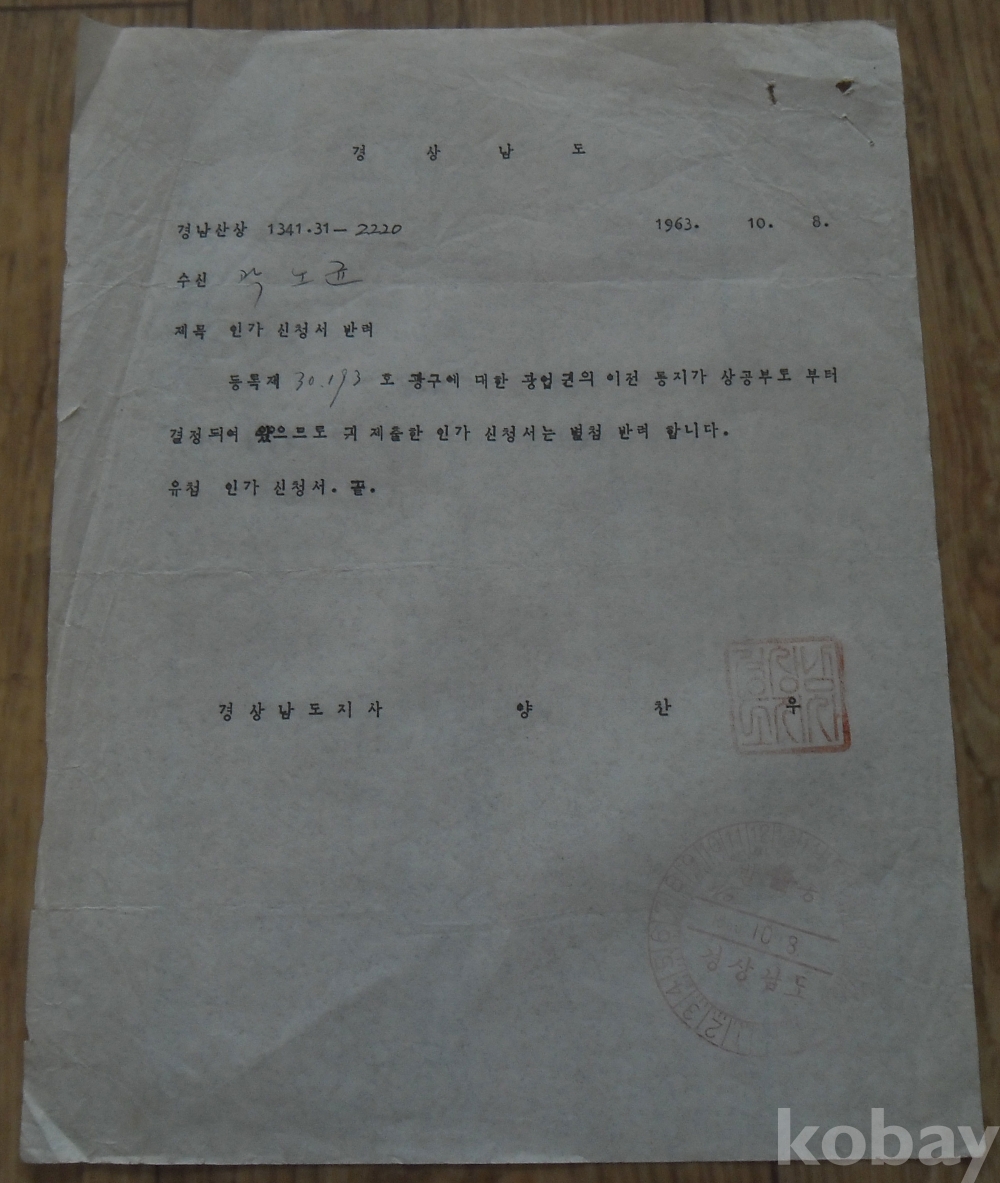 경 상 남 도
경남산상 1341.31-2220 1963. 10. 8.
수신 곽노균
제목 인가 신청서 반려
등록제 30.193 호 광구에 대한 광업권의 이전 통지가 상공부로 부터
결정되여 왔으므로 귀 제출한 인가 신청서는 별첨 반려 합니다.
유첨 인가 신청서. 끝.
경상남도지사 양 찬 우
경상남
도지사
10.8
경상남도
kobay